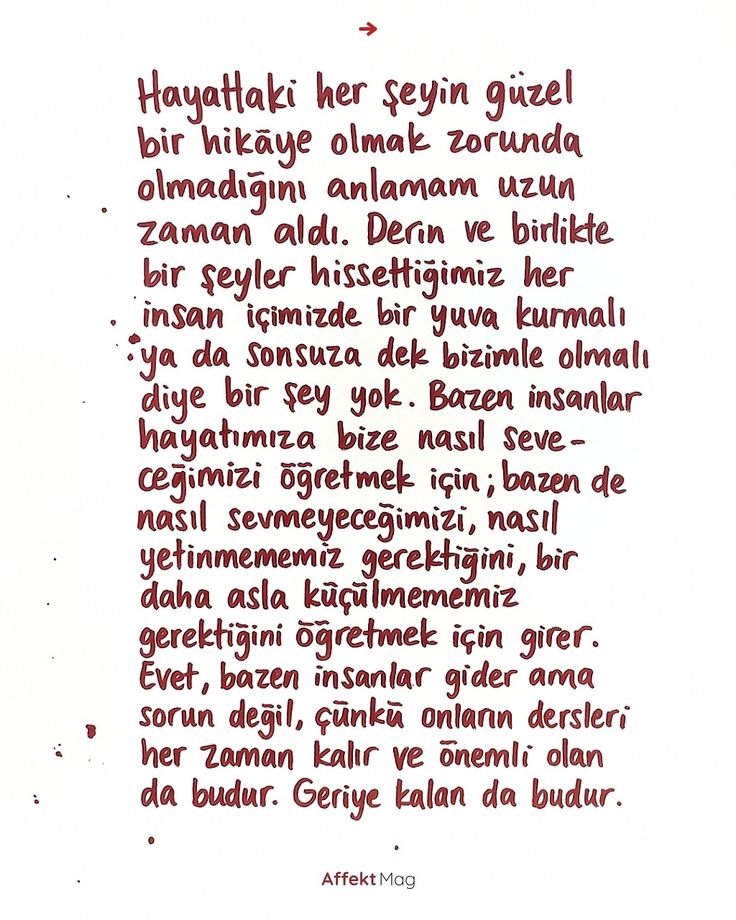 →
Hayattaki her şeyin güzel
bir hikâye olmak zorunda
olmadığını anlamam uzun
zaman aldı. Derin ve birlikte
bir şeyler hissettiğimiz her
insan içimizde bir yuva kurmalı
ya da sonsuza dek bizimle olmalı
diye bir şey yok. Bazen insanlar
hayatımıza bize nasıl seve-
ceğimizi öğretmek için; bazen de
nasıl sevmeyeceğimizi, nasıl
yetinmememiz gerektiğini, bir
daha asla küçülmememiz
gerektiğini öğretmek için girer.
Evet, bazen insanlar gider ama
sorun değil, çünkü onların dersleri
her zaman kalır ve önemli olan
da budur. Geriye kalan da budur.
Affekt Mag